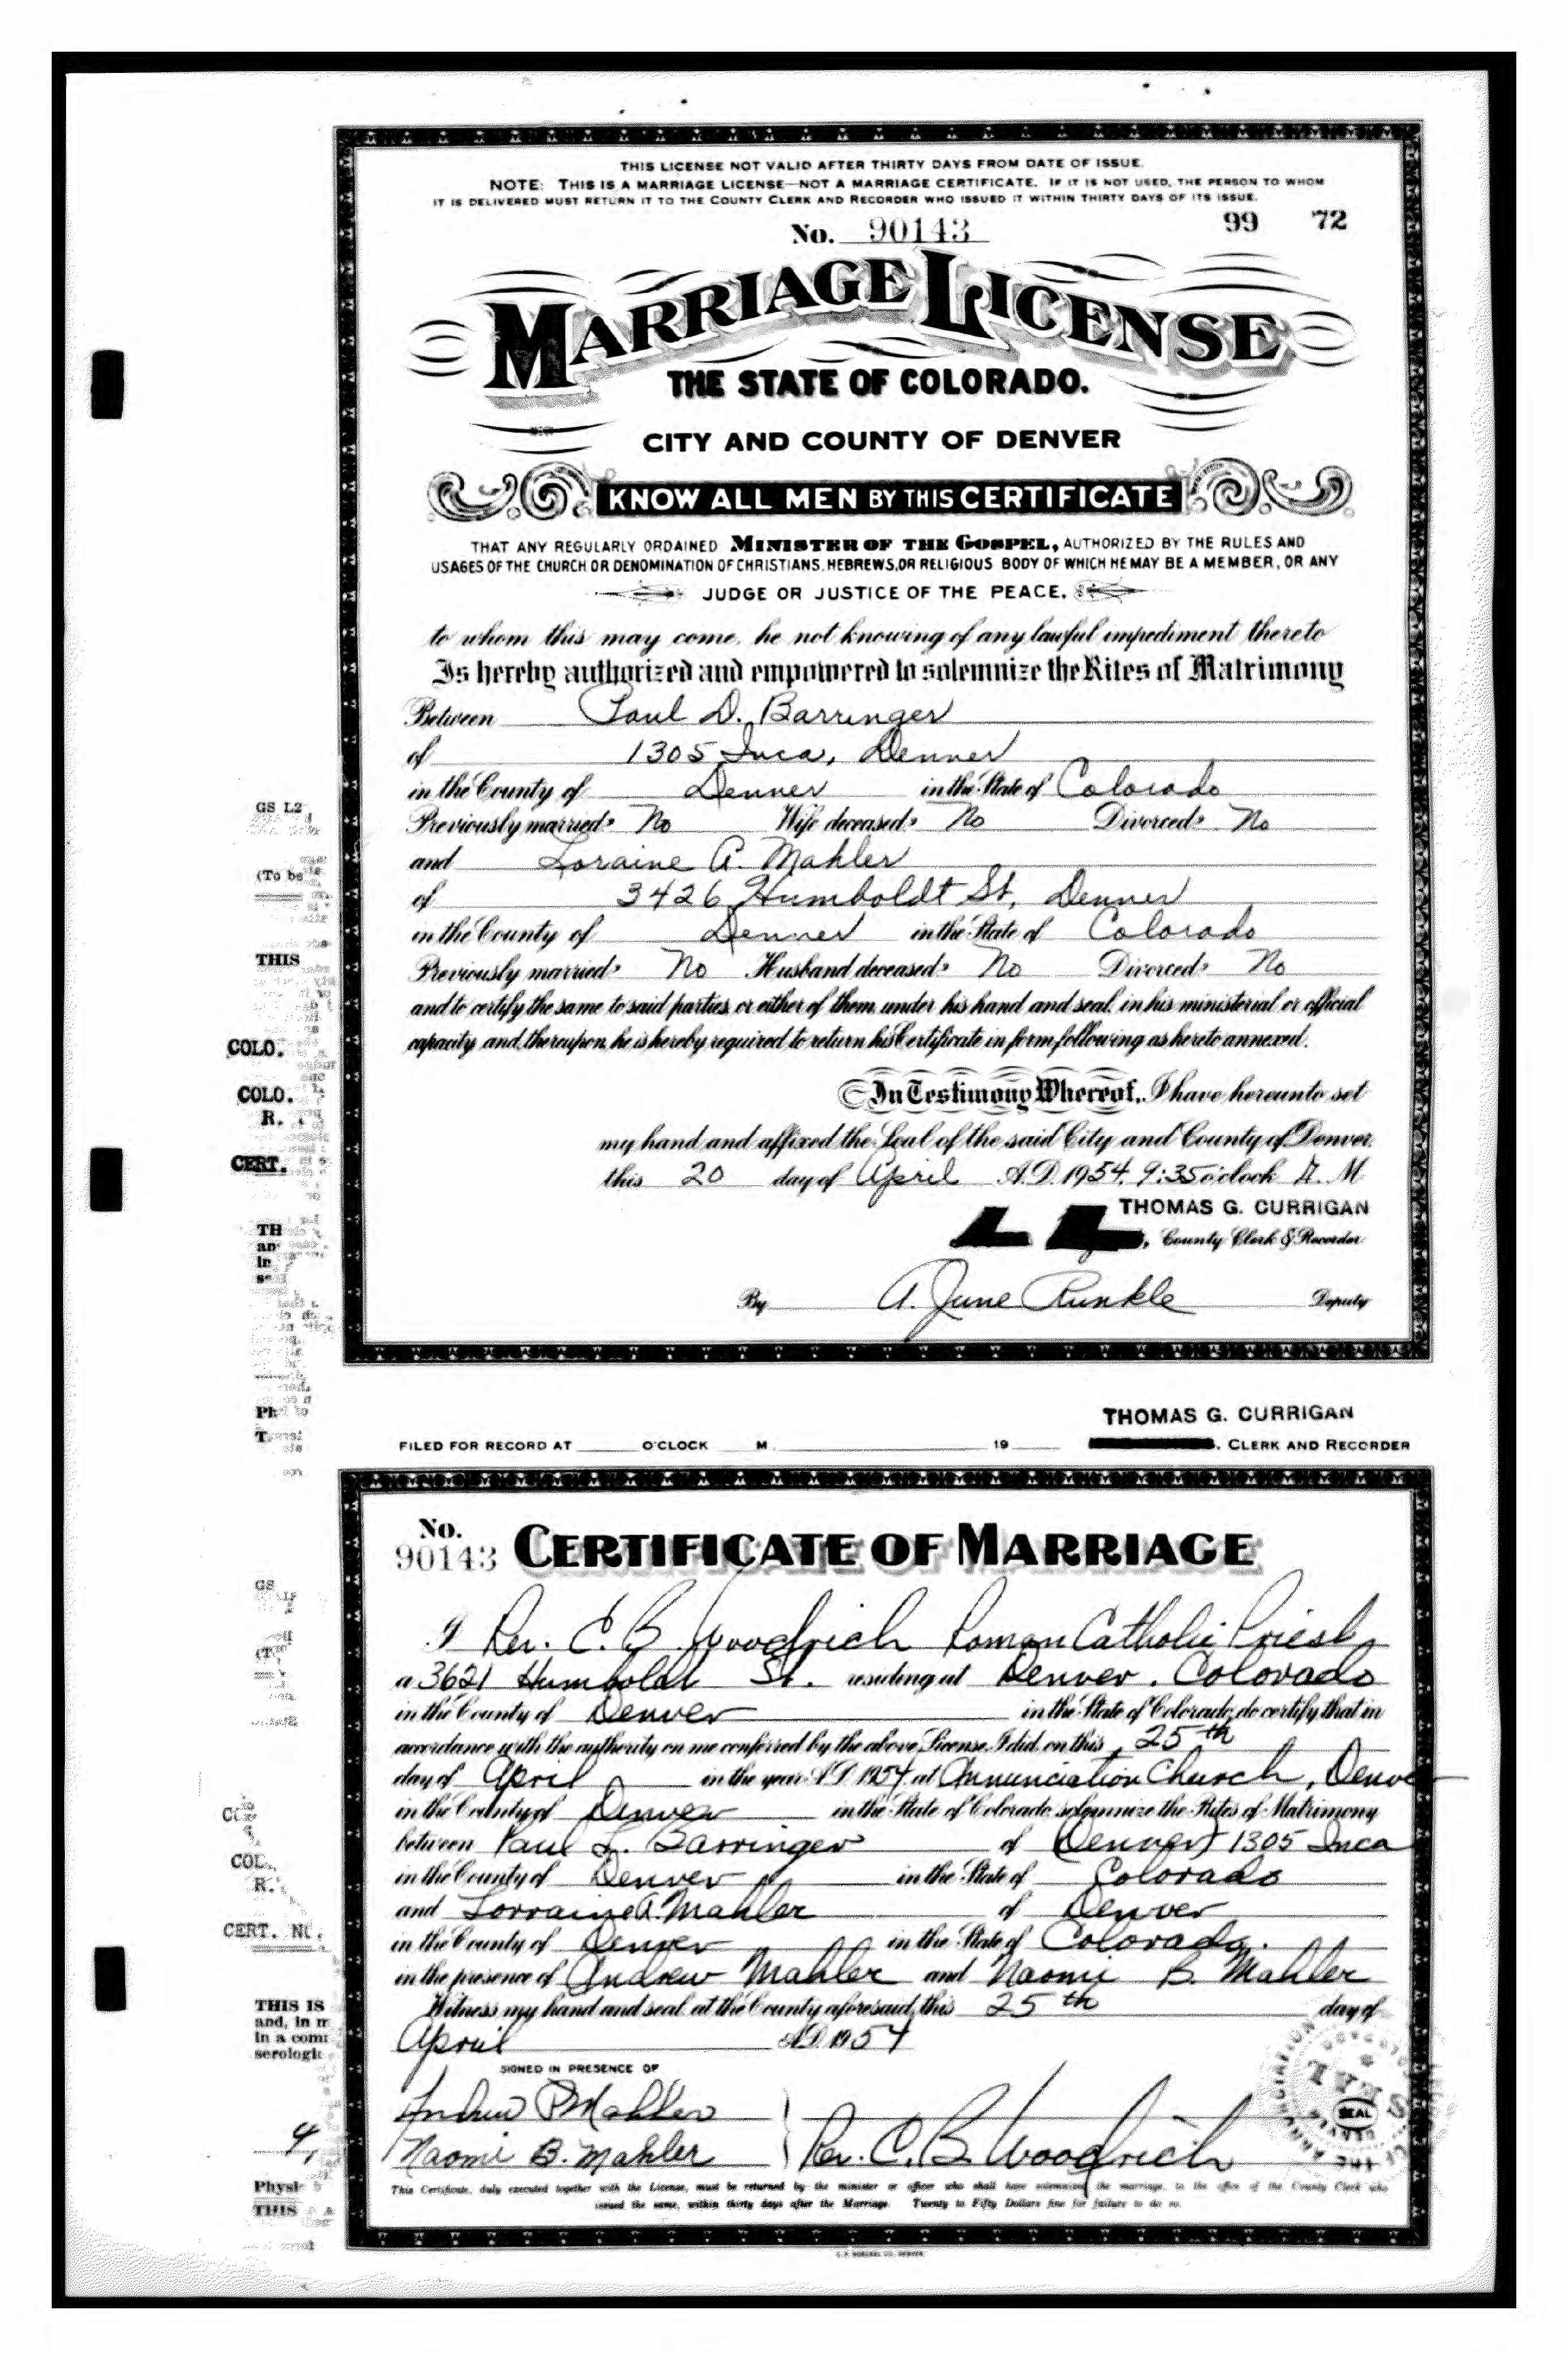 THIS LICENSE NOT VALID AFTER THIRTY DAYS FROM DATE OF ISSUE.
NOTE: THIS IS A MARRIAGE LICENSE—NOT A MARRIAGE CERTIFICATE. IF IT IS NOT USED, THE PERSON TO WHOM
IT IS DELIVERED MUST RETURN IT TO THE COUNTY CLERK AND RECORDER WHO ISSUED IT WITHIN THIRTY DAYS OF ITS ISSUE.
No. 90143 99 72
MARRIAGE LICENSE
THE STATE OF COLORADO.
CITY AND COUNTY OF DENVER
KNOW ALL MEN BY THIS CERTIFICATE
THAT ANY REGULARLY ORDAINED MINISTER OF THE GOSPEL, AUTHORIZED BY THE RULES AND
USAGES OF THE CHURCH OR DENOMINATION OF CHRISTIANS, HEBREWS, OR RELIGIOUS BODY OF WHICH HE MAY BE A MEMBER, OR ANY
JUDGE OR JUSTICE OF THE PEACE,
to whom this may come, he not knowing of any lawful impediment thereto
Is hereby authorized and empowered to solemnize the Rites of Matrimony
Between Paul D. Barringer
of 1305 Inca, Denver
in the County of Denver in the State of Colorado
Previously married? No Wife deceased? No Divorced? No
and Loraine A. Mahler
of 3426 Humboldt St, Denver
in the County of Denver in the State of Colorado
Previously married? No Husband deceased? No Divorced? No
and to certify the same to said parties, or either of them, under his hand and seal, in his ministerial or official
capacity and, thereupon, he is hereby required to return his Certificate in form following as hereto annexed.
In Testimony Whereof, I have hereunto set
my hand and affixed the Seal of the said City and County of Denver,
this 20 day of April A.D. 1954, 9:35 o'clock A. M
THOMAS G. CURRIGAN
, County Clerk & Recorder
By A. June Runkle Deputy
THOMAS G. CURRIGAN
FILED FOR RECORD AT O'CLOCK M 19 , CLERK AND RECORDER
No.
90143 CERTIFICATE OF MARRIAGE
I Rev. C. B. Woodrich Roman Catholic Priest
a 3621 Humboldt St. residing at Denver, Colorado
in the County of Denver in the State of Colorado, do certify that in
accordance with the authority on me conferred by the above License, I did, on this 25th
day of April in the year A.D. 1954 at Annunciation Church, Denver
in the County of Denver in the State of Colorado solemnize the Rites of Matrimony
between Paul L. Barringer of Denver, 1305 Inca
in the County of Denver in the State of Colorado
and Lorraine A. Mahler of Denver
in the County of Denver in the State of Colorado.
in the presence of Andrew Mahler and Naomi B. Mahler
Witness my hand and seal at the County aforesaid, this 25th day of
April A.D. 1954
SIGNED IN PRESENCE OF
Andrew P Mahler
Naomi B. Mahler Rev. C. B. Woodrich
SEAL
This Certificate, duly executed together with the License, must be returned by the minister or officer who shall have solemnized the marriage, to the office of the County Clerk who
issued the same, within thirty days after the Marriage. Twenty to Fifty Dollars fine for failure to do so.
GS L2
(To be
THIS
COLO.
COLO.
R.
CERT.
TH
an
in
GS
R.
CERT. NO.
THIS IS
and, in
in a com
serologic
4,
Physi
THIS